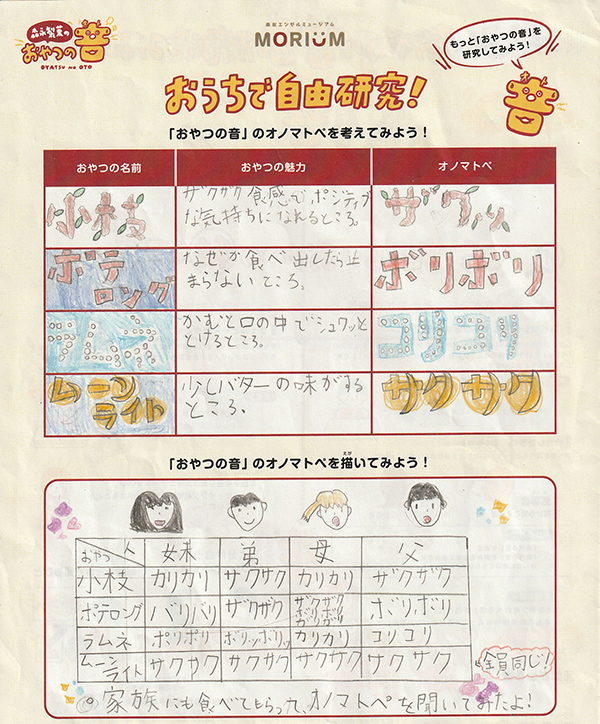 森永製菓の
おやつの音
OYATSU NO OTO
森永エンゼルミュージアム
MORIUM
もっと「おやつの音」を
研究してみよう！
オト
音
おうちで自由研究！
「おやつの音」のオノマトペを考えてみよう！
おやつの名前 おやつの魅力 オノマトペ
小枝
ザクザク食感で、ポジティブ
な気持ちになれるところ。
ザクッ
ポテ
ロング
なぜか食べ出したら止
まらないところ。
ボリボリ
ラムネ
かむと口の中でシュワッと
とけるところ。
コリコリ
ムーン
ライト
少しバターの味がする
ところ。
サクサク
「おやつの音」のオノマトペを描いてみよう！
えが
おやつ 人 妹 弟 母 父
小枝 カリカリ ザクザク カリカリ ザクザク
ポテロング バリバリ ザクザク ザクザク ボリボリ ガリガリ ボリボリ
ラムネ ポリポリ ボリッボリッ カリカリ コリコリ
ムーンライト サクサク サクサク サクサク サクサク
全員同じ！
◎家族にも食べてもらって、オノマトペを聞いてみたよ！